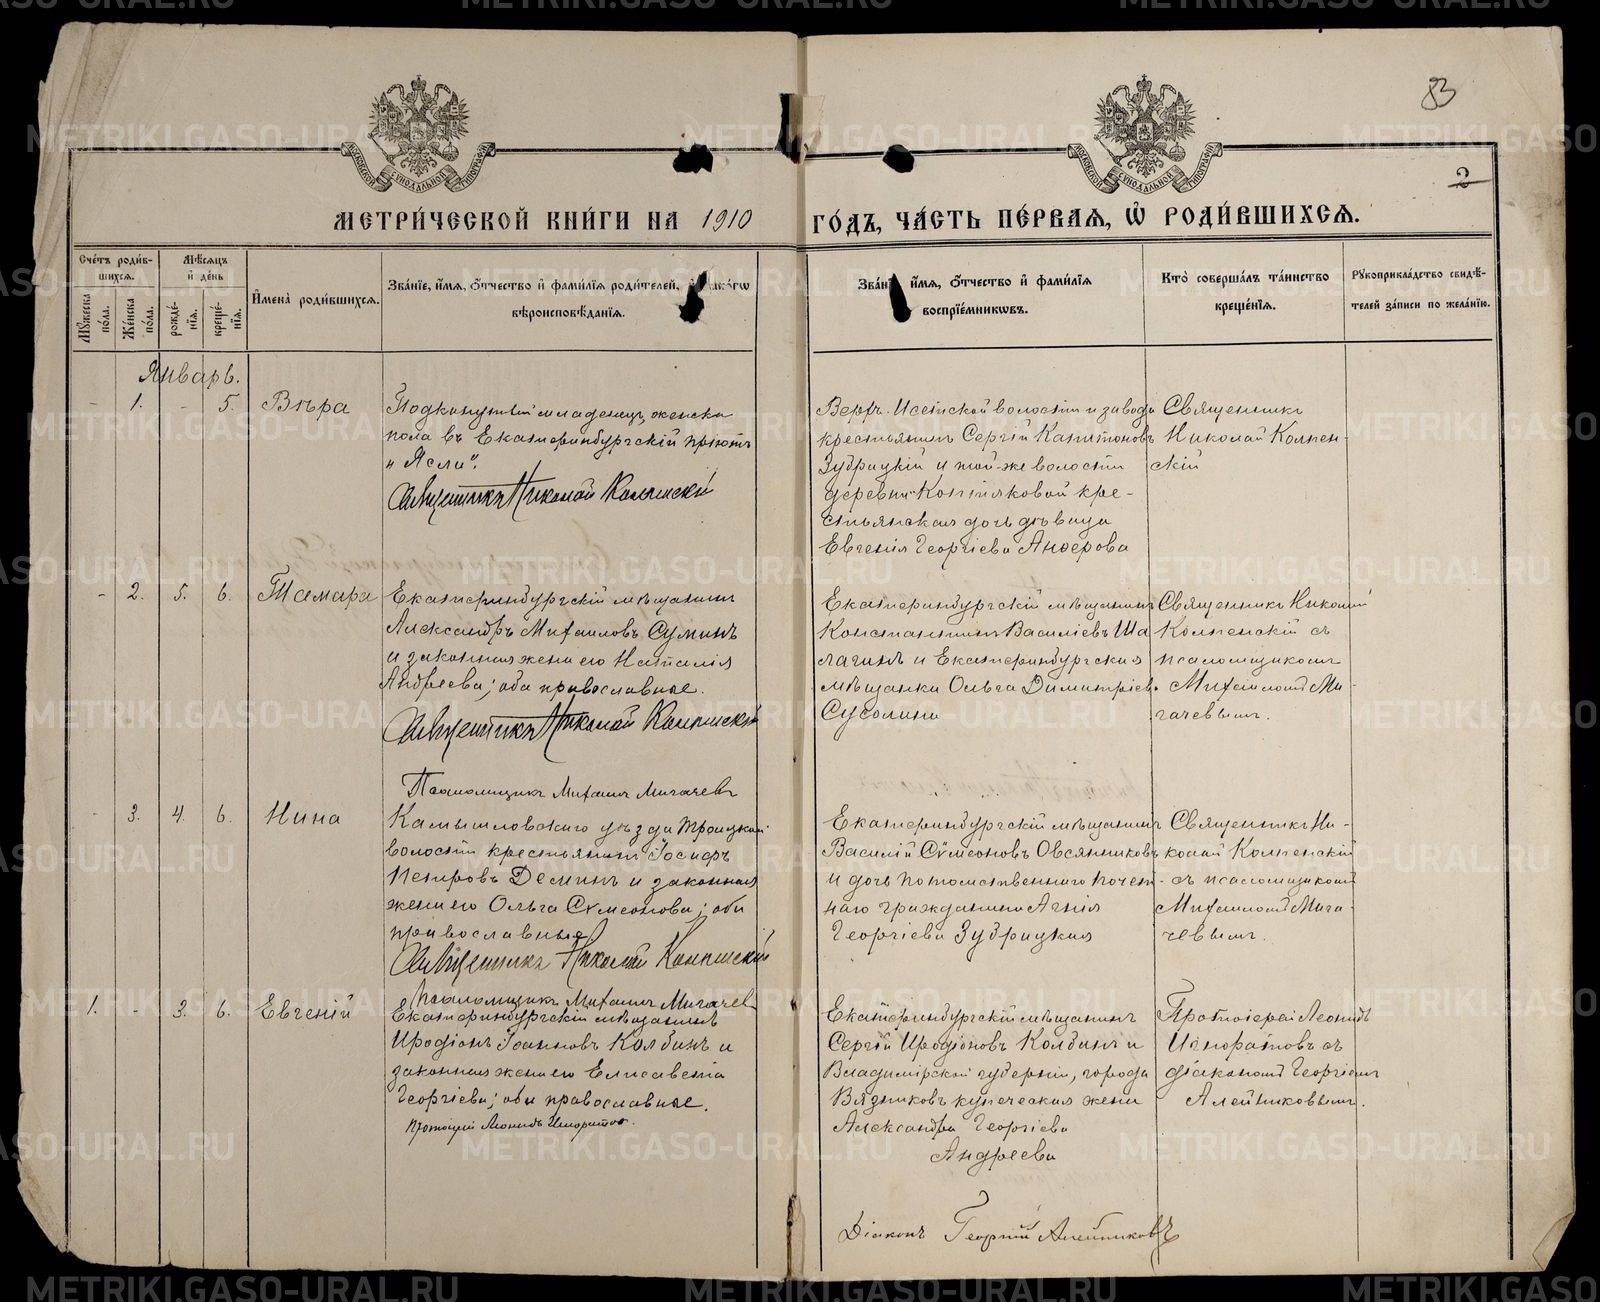 83
2
МЕТРИ́ЧЕСКОЙ КНИ́ГИ НА 1910 ГО́ДЪ, ЧА́СТЬ ПЕ́РВАЯ, Ѡ҆ РОДИ́ВШИХСЯ.
Сче́тъ роди́в-
шихся.
Мꙋ́жеска по́ла.
Же́нска по́ла.
Мѣ́сяцъ
и҆ де́нь
рожде́-
нїя.
креще́-
нїя.
И҆мена̀ роди́вшихся.
Зва́нїе, и҆́мя, ѻ҆́тчество и҆ фами́лїя роди́телей,
вѣроисповѣ́данїя.
и҆́мя, ѻ҆́тчество и҆ фами́лїя
воспрїе́мниковъ.
Кто̀ соверша́лъ та́инство
креще́нїя.
Рꙋкоприкла́дство свидѣ́-
телей за́писи по жела́нїю.
Январь.
- 1. - 5. Вѣра
Подкинутый младенецъ, женска
пола въ Екатеринбургскій пріютъ
„Ясли“.
Священникъ Николай Колпенскій
Верхъ-Исетской волости и завода
крестьянинъ Сергій Капитоновъ
Зубрицкій и той-же волости
деревни Коптяковой кре-
стьянская дочь дѣвица
Евгенія Георгіева Анферова
Священникъ
Николай Колпен-
скій
- 2. 5. 6. Тамара
Екатеринбургскій мѣщанинъ
Александръ Михаиловъ Суминъ
и законная жена его Наталія
Андреева; оба православные.
Священникъ Николай Колпенскій
Псаломщикъ Михаилъ Мигачевъ
Екатеринбургскій мѣщанинъ
Константинъ Василіевъ Ша
лагинъ и Екатеринбургская
мѣщанка Ольга Димитріев.
Сусолина
Священникъ Николай
Колпенскій съ
псаломщикомъ
Михаиломъ Ми-
гачевымъ.
- 3. 4. 6. Нина
Камышловскаго уѣзда Троицкой
волости крестьянинъ Іосифъ
Петровъ Деминъ и законная
жена его Ольга Сѵмеонова; оба
православные
Священникъ Николай Колпенскій
Псаломщикъ Михаилъ Мигачев
Екатеринбургскій мѣщанинъ
Василій Сѵмеоновъ Овсянниковъ
и дочь потомственнаго почет-
наго гражданина Агнія
Георгіева Зубрицкая
Священникъ Ни-
колай Колпенскій
съ псаломщикомъ
Михаиломъ Мига-
чевымъ.
1. - 3. 6. Евгеній
Екатеринбургскій мѣщанинъ
Иродіонъ Іоанновъ Колбинъ и
законная жена его Елисавета
Георгіева; оба православные.
Протоіерей Леонидъ Игноратовъ.
Екатеринбургскій мѣщанинъ
Сергій Иродіоновъ Колбинъ и
Владимірской губерніи, города
Вязниковъ купеческая жена
Александра Георгіева
Андреева
Протоіерей Леонидъ
Игноратовъ съ
діакономъ Георгіемъ
Алейниковымъ.
Діаконъ Георгій Алейниковъ
METRIKI.GASO-URAL.RU